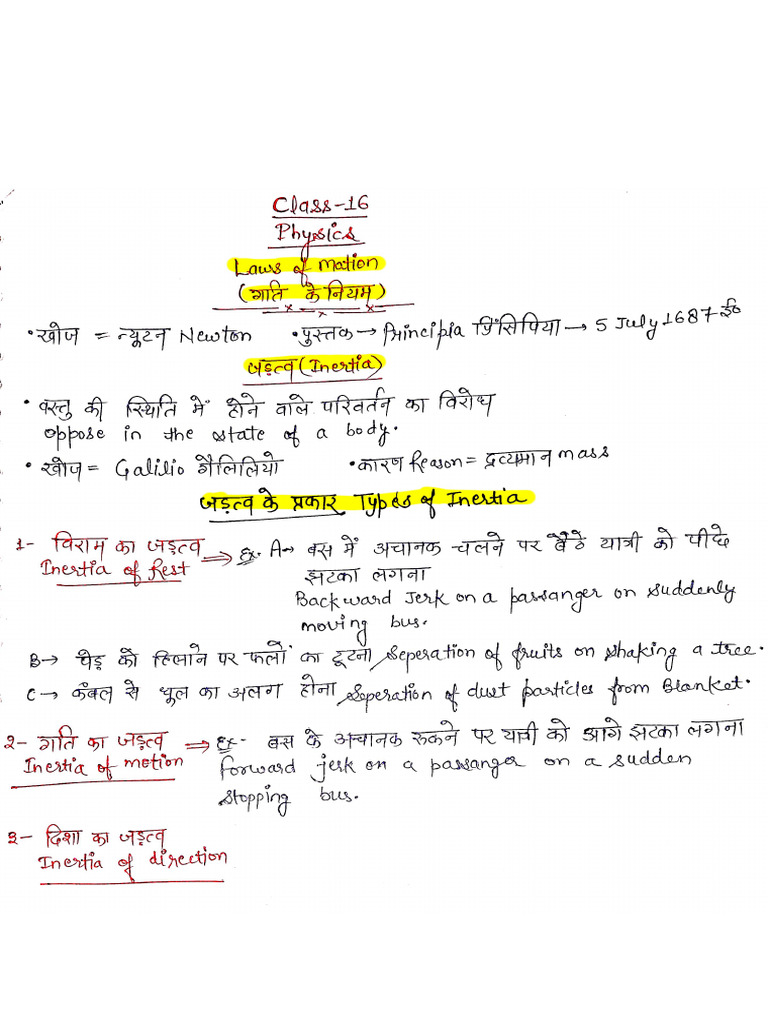 Class-16
Physics
Laws of motion
(गति के नियम)
• खोज = न्यूटन Newton • पुस्तक → Principia प्रिंसिपिया → 5 July 1687 ई०
जड़त्व (Inertia)
• वस्तु की स्थिति में होने वाले परिवर्तन का विरोध
oppose in the state of a body.
• खोज = Galilio गैलिलियो • कारण Reason = द्रव्यमान mass
जड़त्व के प्रकार Types of Inertia
1- विराम का जड़त्व ⇒ Ex- A→ बस में अचानक चलने पर बैठे यात्री को पीछे
Inertia of Rest झटका लगना
Backward Jerk on a passanger on suddenly
moving bus.
B→ पेड़ को हिलाने पर फलों का टूटना Seperation of fruits on shaking a tree.
C→ कंबल से धूल का अलग होना Seperation of dust particles from Blanket.
2- गति का जड़त्व ⇒ Ex- बस के अचानक रुकने पर यात्री को आगे झटका लगना
Inertia of motion forward jerk on a passanger on a sudden
stopping bus.
3- दिशा का जड़त्व
Inertia of direction